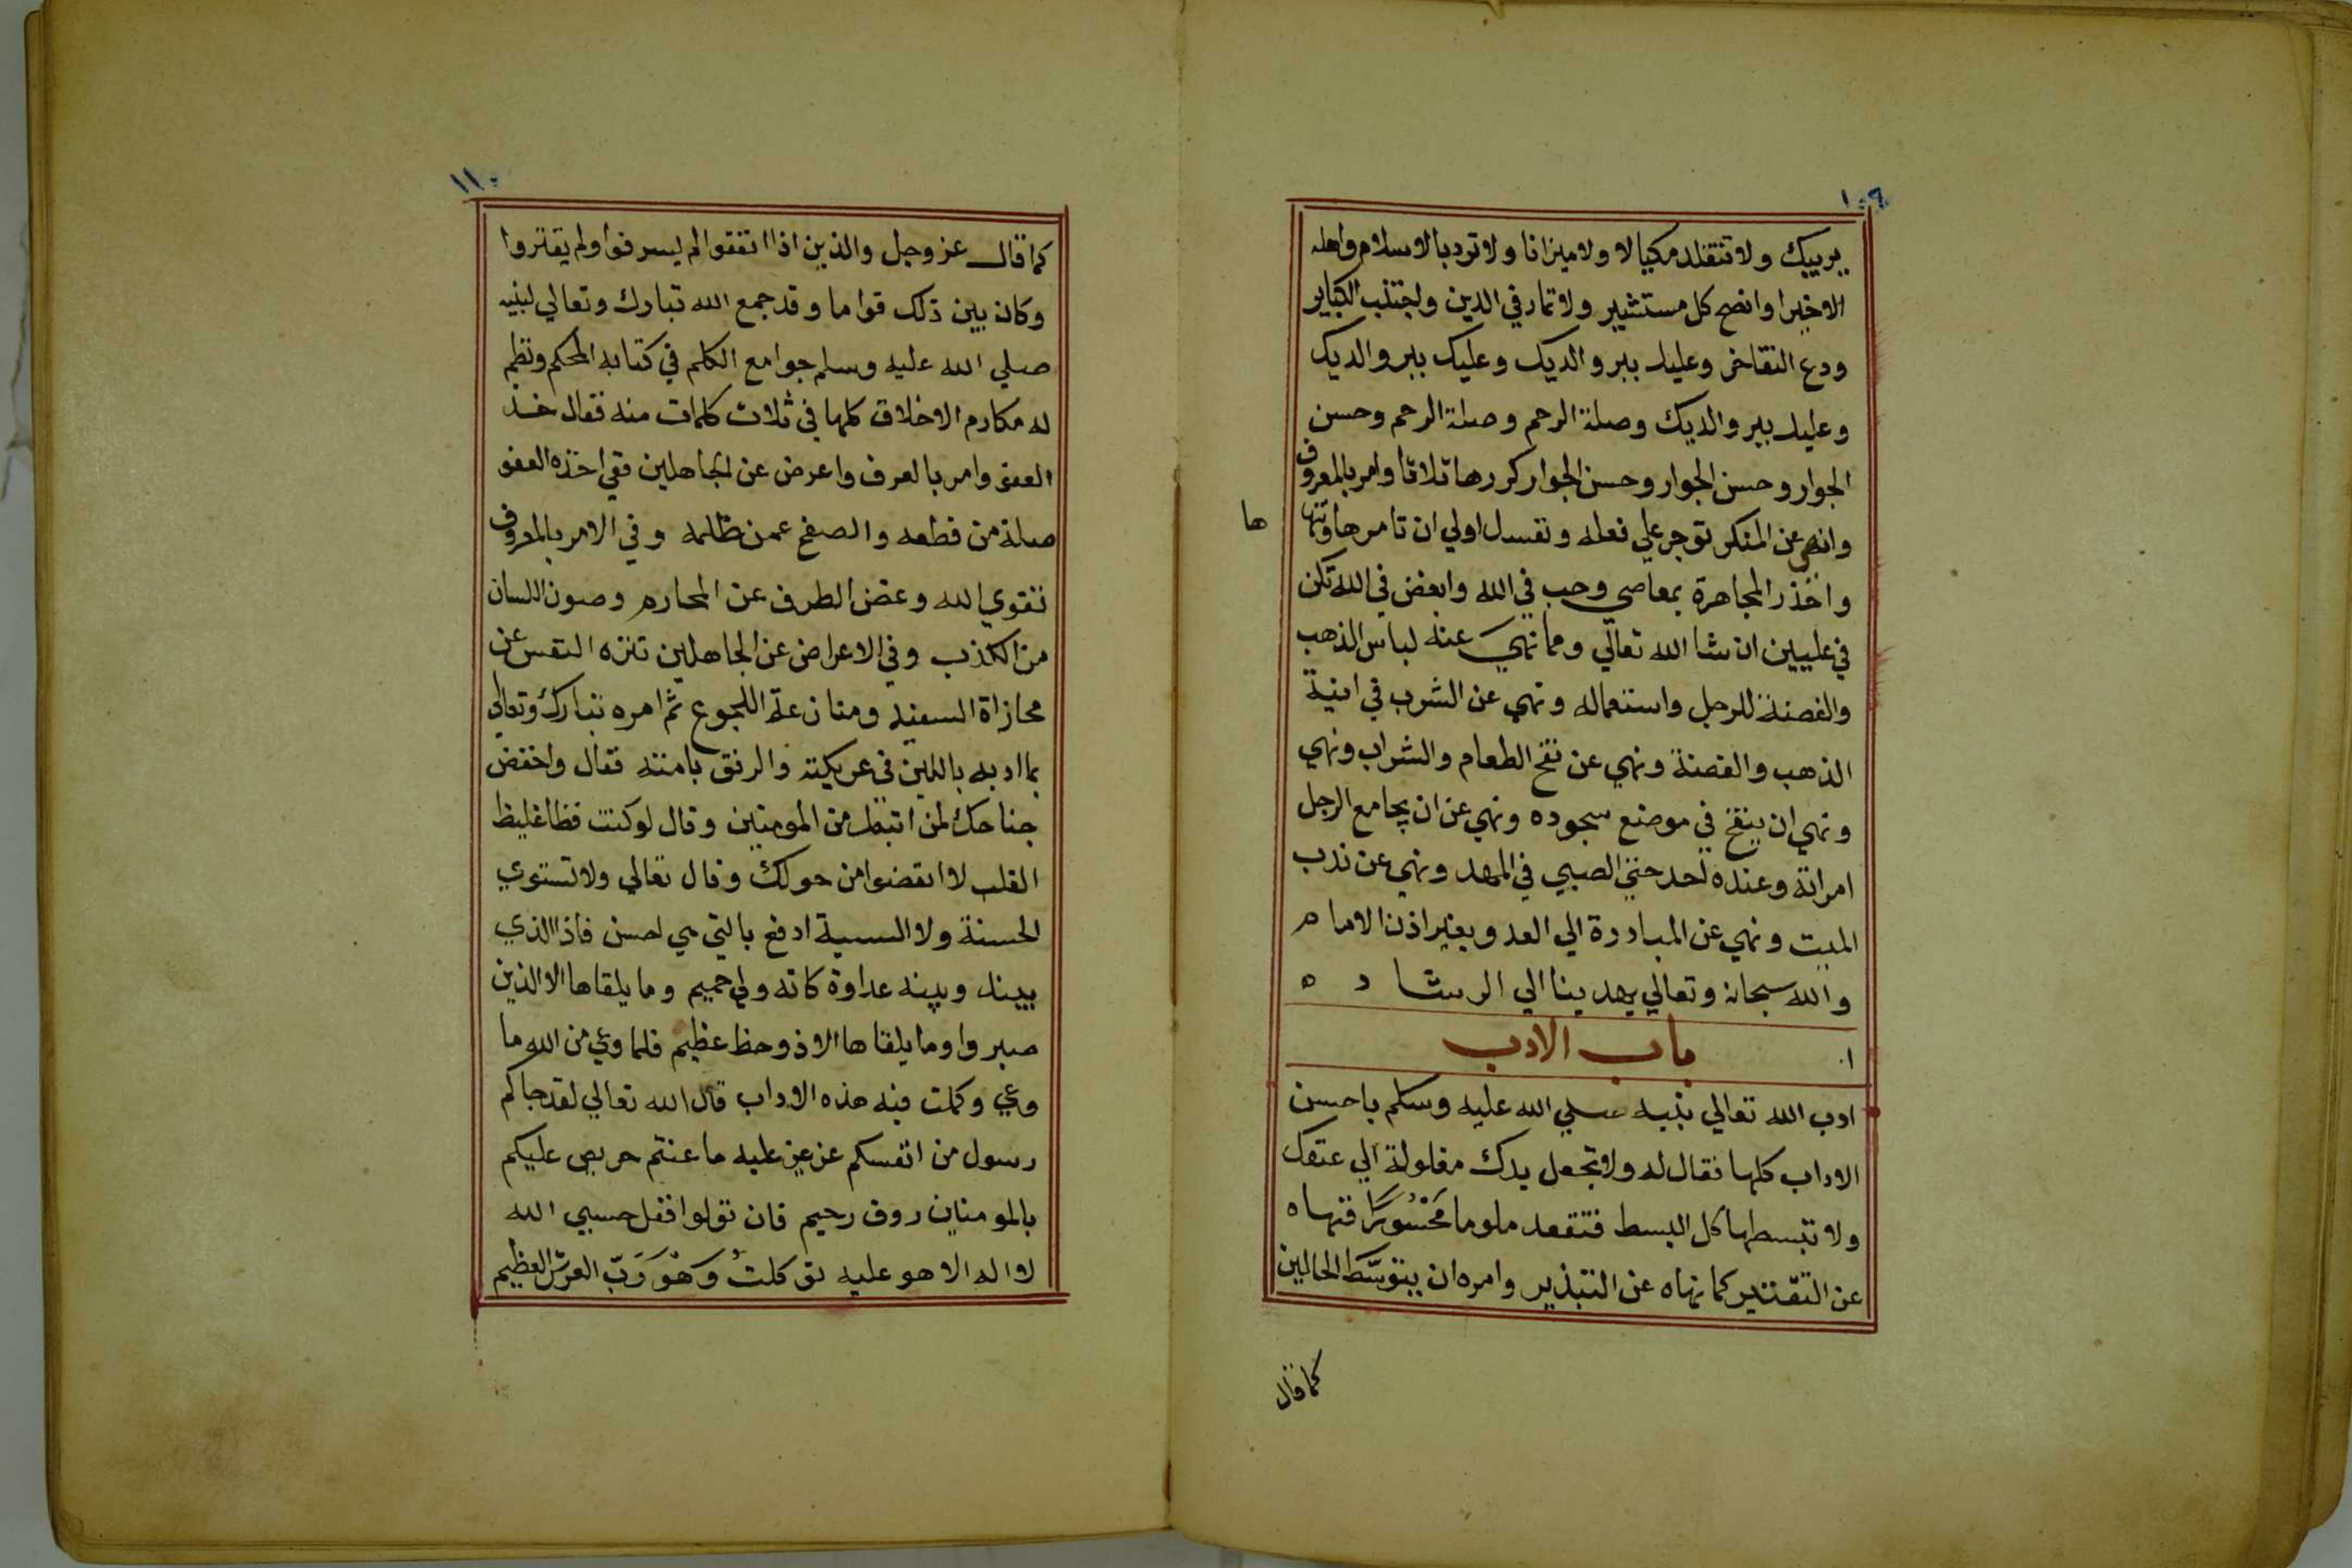 ١٠٩
يربيك ولا تنقلد مكيالا ولا ميزانا ولا تود بالاسلام واهله
الاخيرا وانصح كل مستشير ولا تمار في الدين واجتنب الكباير
ودع التفاخر وعليك ببر والديك وعليك ببر والديك
وعليك ببر والديك وصلة الرحم وصلة الرحم وحسن
الجوار وحسن الجوار وحسن الجوار كررها ثلاثا وامر بالمعروف
وانهى عن المنكر توجر علي فعله ونفسك اولي ان تامرها وتنها
ها
واحذر المجاهرة بمعاصي وحب في الله وابغض في الله تكن
في عليين ان شا الله تعالي ومما نهي عنه لباس الذهب
والفضة للرجل واستعماله ونهي عن الشرب في انية
الذهب والفضة ونهي عن نفخ الطعام والشراب ونهي
ونهي ان ينفخ في موضع سجوده ونهي عن ان يجامع الرجل
امراته وعنده احد حتي الصبي في المهد ونهي عن ندب
الميت ونهي عن المبادرة الي العدو بغير اذن الامام
والله سبحانه وتعالي يهدينا الي الرشاد ه
باب الادب
ادب الله تعالي نبيه صلي الله عليه وسلم باحسن
الاداب كلها فقال له ولا تجعل يدك مغلولة الي عنقك
ولا تبسطها كل البسط فتقعد ملوما مَحْسُورًا فنهاه
عن التقتير كما نهاه عن التبذير وامره ان يتوسَّط الحالين
كما قال
١١٠
كما قال عز وجل والذين اذا انفقوا لم يسرفوا ولم يقتروا
وكان بين ذلك قواما وقد جمع الله تبارك وتعالي لنبيه
صلي الله عليه وسلم جوامع الكلم في كتابه المحكم ونظم
له مكارم الاخلاق كلها في ثلاث كلمات منه فقال خذ
العفو وامر بالعرف واعرض عن الجاهلين ففي اخذه العفو
صلة من قطعه والصفح عمن ظلمه وفي الامر بالمعروف
تقوي الله وغض الطرف عن المحارم وصون اللسان
من الكذب وفي الاعراض عن الجاهلين تنزه النفس عن
مجازاة السفيه ومنازعة اللجوج ثم امره تبارك وتعالي
بما ادبه باللين في عريكته والرفق بامته فقال واخفض
جناحك لمن اتبعك من المومنين وقال لو كنت فظا غليظ
القلب لا انفضوا من حولك وقال تعالي ولا تستوي
الحسنة ولا السيية ادفع بالتي هي احسن فاذا الذي
بينك وبينه عداوة كانه ولي حميم وما يلقاها الا الذين
صبروا وما يلقاها الا ذو حظ عظيم فلما وعي من الله ما
وعي وكملت فيه هذه الاداب قال الله تعالي لقد جاكم
رسول من انفسكم عزيز عليه ما عنتم حريص عليكم
بالمومنين روف رحيم فان تولوا فقل حسبي الله
لا اله الا هو عليه توكلتُ وَهُوَ رَبّ العرش العظيم